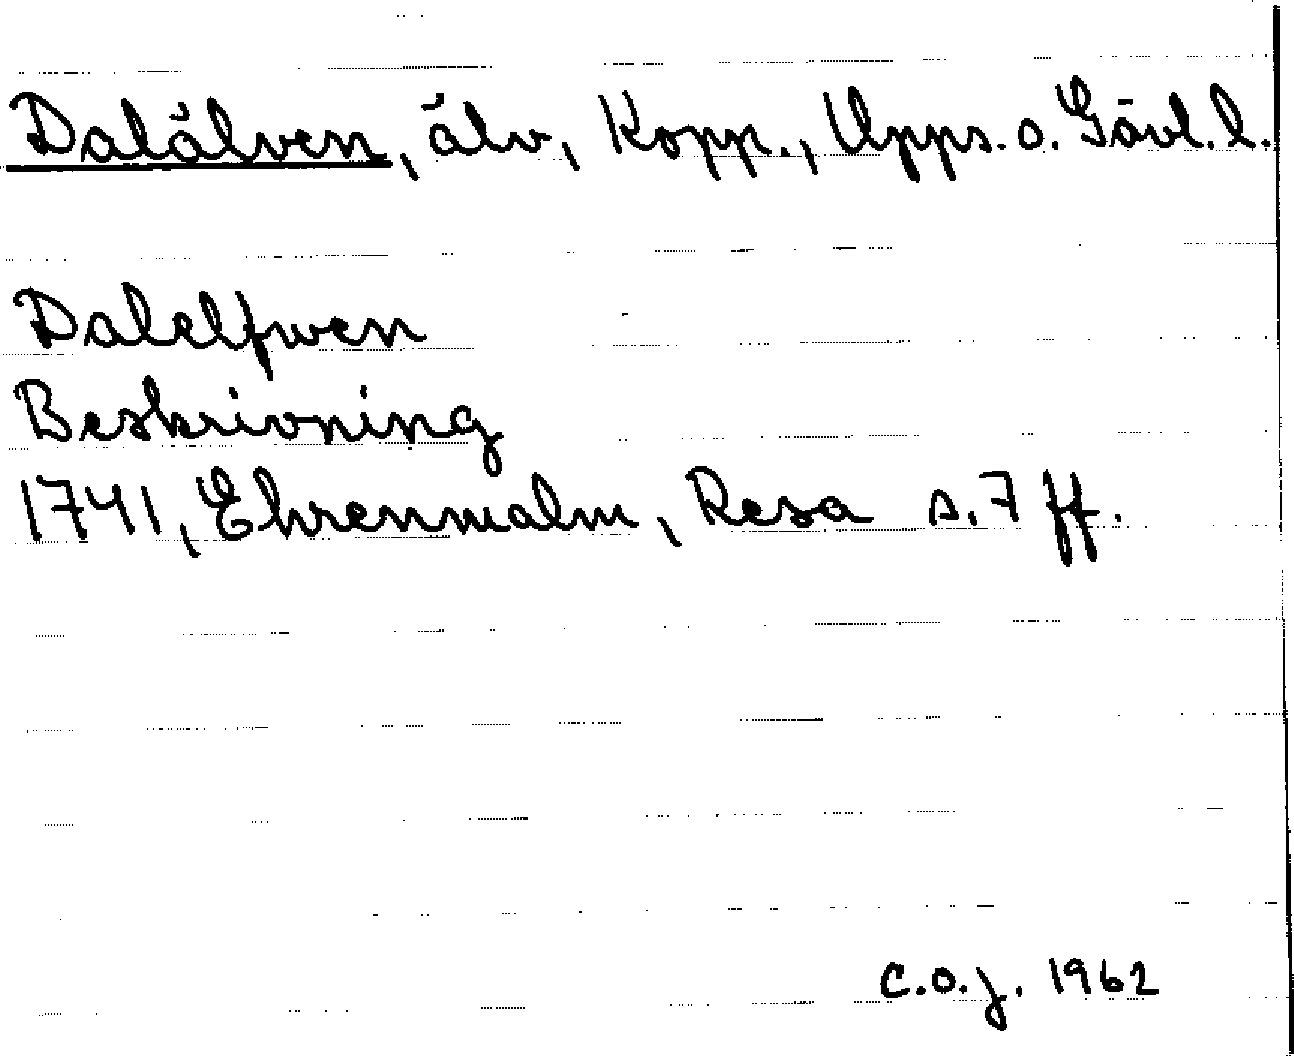 Dalälven, älv, Kopp., Upps. o. Gävl. l.
Dalelfwen
Beskrivning
1741, Ehrenmalm, Resa s. 7 ff.
C.O.J. 1962